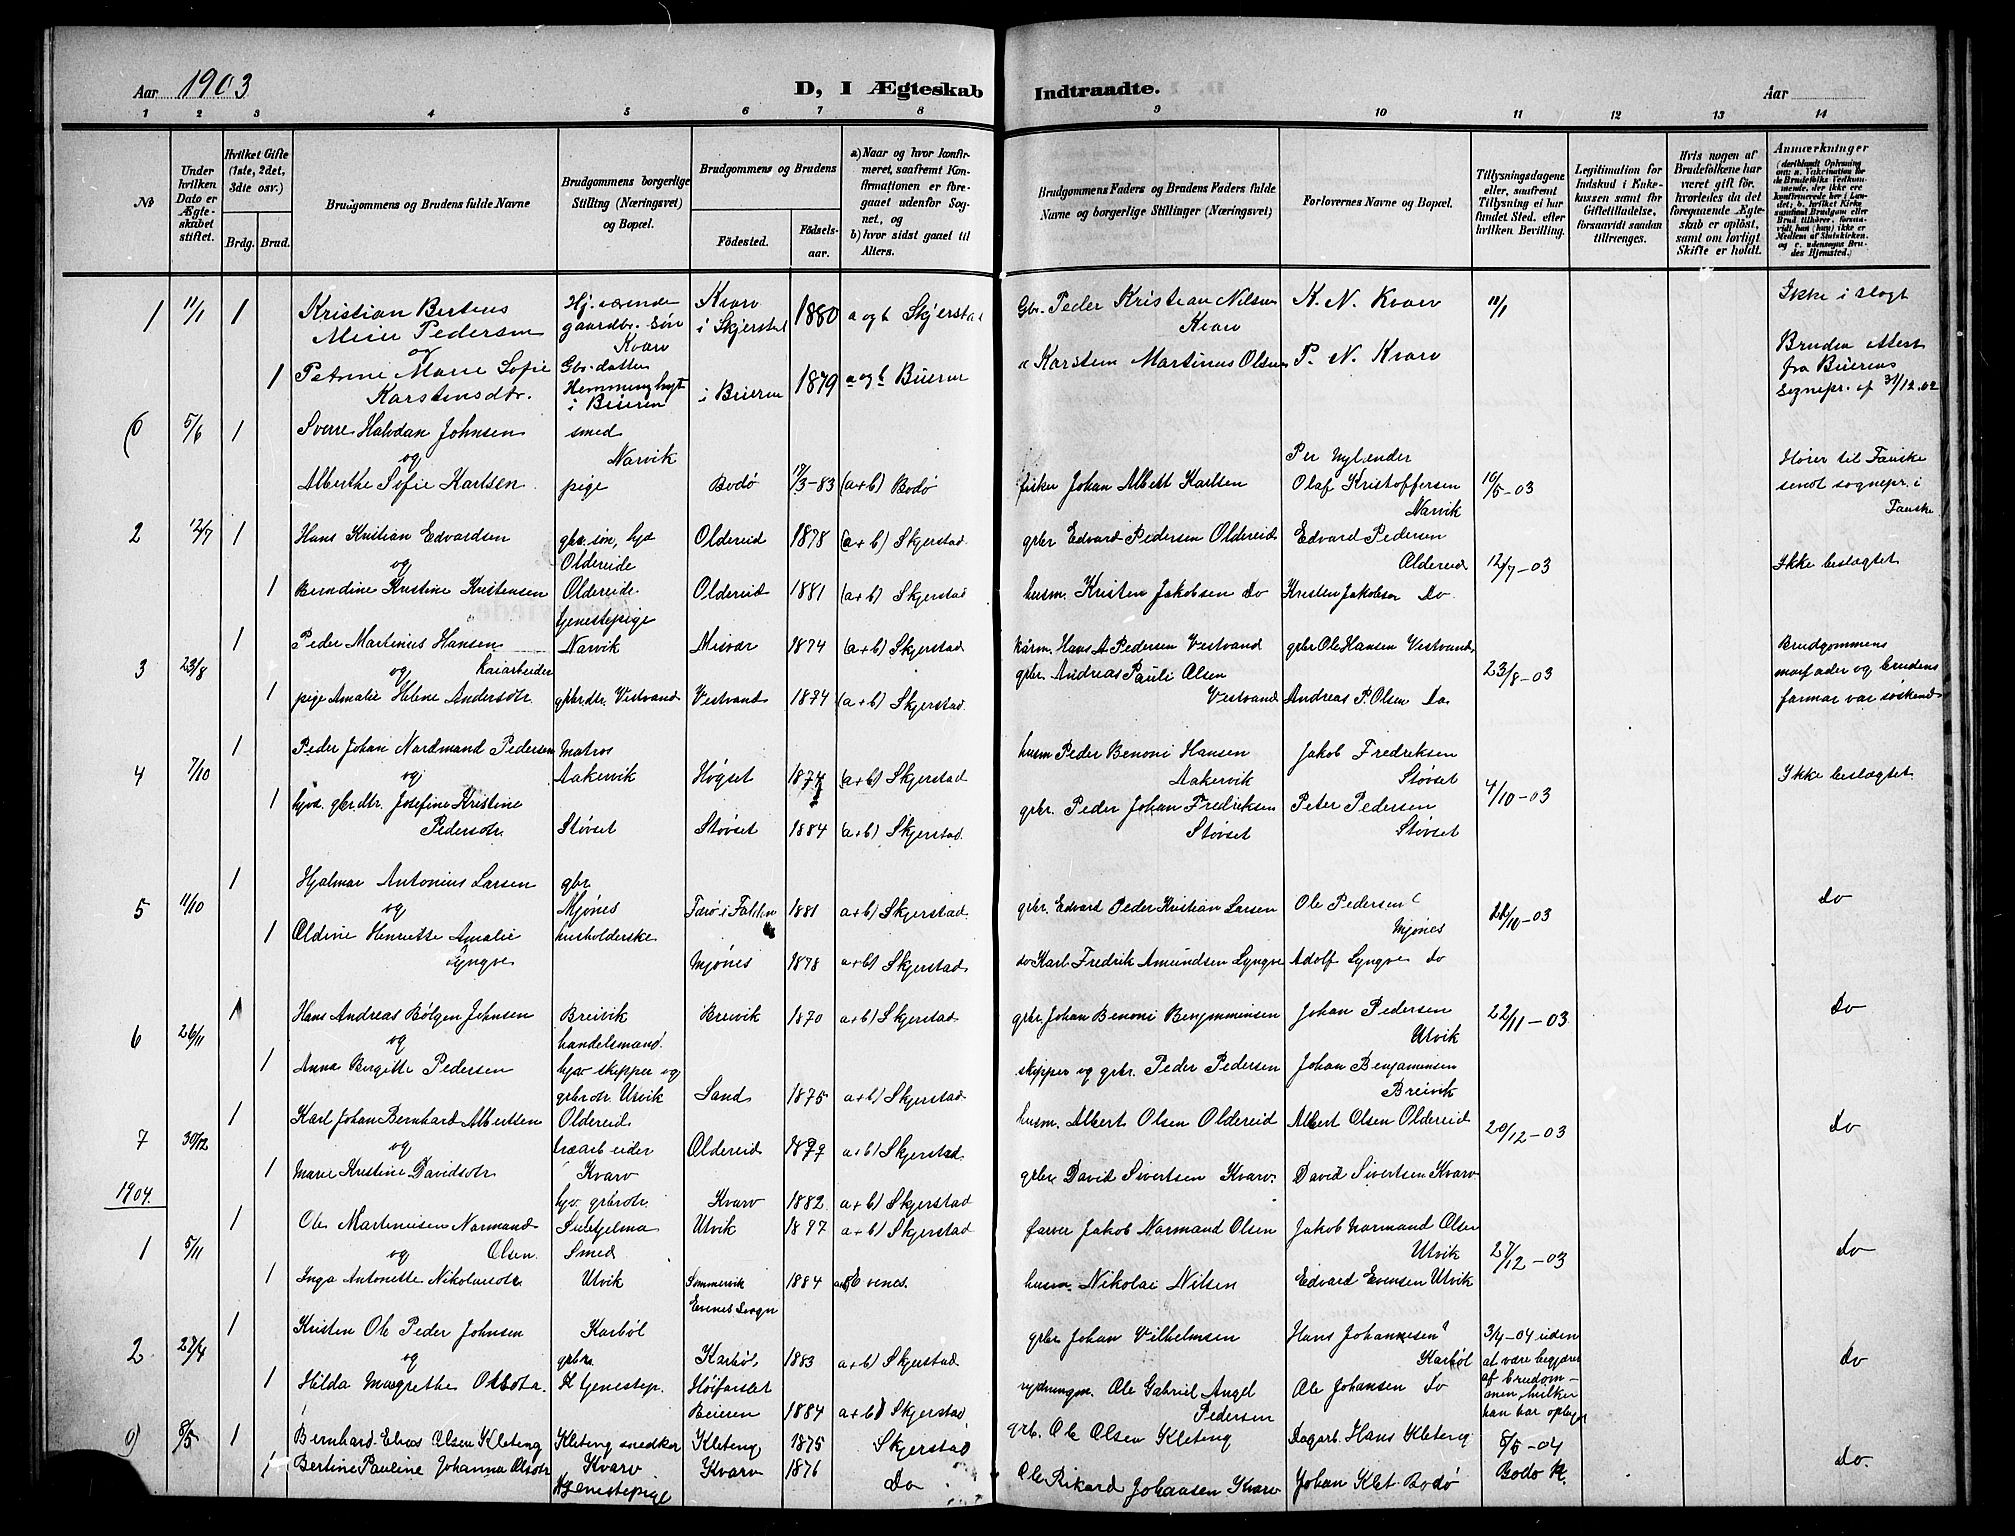 Aar 1903
D, I Ægteskab Indtraadte.
Aar
1 2 3 4 5 6 7 8 9 10 11 12 13 14
No
Under hvilken Dato er Ægteskabet stiftet.
Hvilket Gifte (1ste, 2det, 3die osv.)
Brdg. Brud.
Brudgommens og Brudens fulde Navne
Brudgommens borgerlige Stilling (Næringsvei) og Bopæl.
Brudgommens og Brudens
Fødested.
Fødselsaar.
a) Naar og hvor konfirmeret, saafremt Konfirmationen er foregaaet udenfor Sognet, og
b) hvor sidst gaaet til Alters.
Brudgommens Faders og Brudens Faders fulde Navne og borgerlige Stillinger (Næringsvei)
Forlovernes Navne og Bopæl.
Tillysningsdagene eller, saafremt Tillysning ei har fundet Sted, efter hvilken Bevilling.
Legitimation for Indskud i Enkekassen samt for Giftetilladelse, forsaavidt saadan tiltrænges.
Hvis nogen af Brudefolkene har været gift før, hvorledes da det foregaaende Ægteskab er opløst, samt om lovligt Skifte er holdt.
Anmærkninger
1 11/1 1 Kristian Bertens Kvarv 1880 a og b Skjerstad Gbr. Peder Kristian Nilsen K. N. Kvarv 10/1 Ikke i slægt
Meier Pedersen gaardbr. søn i Skjerstad Kvarv
og Kvarv
1 Petrine Marie Sofie Gbr. datter i Beieren 1879 a og b Beieren Karsten Martinus Olsen P. N. Kvarv
Karstensdtr. i Beieren
Brudens attest fra Beierens Sognepr. af 31/12.02
5/6 1 Sverre Halvdan Johnsen smed
og Narvik Per Nylænder
Alberthe Sofie Karlsen pige Bodø 17/3-83 (a+b) Bodø fisker Johan Albert Karlsen Olaf Kristoffersen 10/5-03
Narvik
Hører til Fauske sendt sognepr. i Fauske
2 12/7 1 Hans Kristian Edvardsen gbr. søn, hje Oldereid 1878 (a+b) Skjerstad grbr Edvard Pedersen Oldereid Edvard Pedersen
og Oldereide Oldereid 12/7-03 Ikke beslægtet
1 Berndine Kristine Kristensen Oldereide Oldereid 1881 (a+b) Skjerstad husm. Kristen Jakobsen do Kristen Jakobsen Do
tjenestepige
3 23/8 1 Peder Martinius Hansen Narvik Misvær 1874 (a+b) Skjerstad Hans A Pedersen Vestvand grbr Ole Hansen Vestvand
og kaiarbeider grbr. Andreas Pauli Olsen 23/8-03
1 pige Amalie Helene Andersdtr. grbr.dtr. Vestvand Vestvand 1874 (a+b) Skjerstad. Vestvand Andreas P. Olsen Do
Brudgommens morfader og brudens farmor var søskende
4 7/10 1 Peder Johan Nordmand Pedersen Matros husm Peder Benoni Hansen Jakob Fredriksen
og Aakervik Høgset 1874 (a+b) Skjerstad Aakervik Støvset 4/10-03 Ikke beslægtet
1 hjv. gbr.dtr. Josefine Kristine grbr. Peder Johan Fredriksen Peter Pedersen
Pedersdtr. Støvset Støvset 1884 (a+b) Skjerstad. Støvset Støvset
5 11/10 1 Hjalmar Antonius Larsen gbr
og Mjønes 1881 a+b) Skjerstad. grbr. Edvard Peder Kristian Larsen Ole Pedersen Mjønes do
1 Oldine Henriette Amalie husholderske
Lyngve Mjønes 1878 a+b) Skjerstad do Karl Fredrik Amundsen Lyngve Adolf Lyngve do
6 26/11 1 Hans Andreas Bølgen Johnsen Breivik Breivik 1870 a+b) Skjerstad grbr Johan Benoni Benjaminsen Johan Pedersen 22/11-03 Do
og handelsmand. Utvik
1 Anna Bergitte Pedersen hjv skipper og skipper og grbr. Peder Pedersen Johan Benjaminsen
grbr.dtr. Utvik Sand 1875 a+b) Skjerstad Breivik
7 30/12 1 Karl Johan Bernhard Albertsen Oldereid husm. Albert Olsen Oldereid Albert Olsen Oldereid 20/12-03 Do
og Oldereid a+b) Skjerstad
1 Marie Kristine Davidsdtr Kvarv grbr David Sivertsen Kvarv. David Sivertsen Kvarv
hjv grbrdtr. Kvarv 1882 a+b) Skjerstad
1904.
1 5/11 1 Ole Martinusen Normand Sulitjelma Utvik a+b) Skjerstad farver Jakob Normand Olsen Jakob Normand Olsen
og Olsen. Smed Utvik 27/12-03 do
1 Inga Antonette Nikolaisdtr Utvik Sommervik 1884 Evenes. husm. Nikolai Nilsen Edvard Evensen Utvik
Evenes Sogn
2 27/4 1 Kristen Ole Peder Johnsen Karbøl grbr Johan Vilhelmsen Hans Johannesen 3/4-04 uden
og grbr. Karbøl 1883 a+b) Skjerstad Karbøl at være begjæret do
1 Hilda Margrethe Olsdtr. tjenestep. Høiforslet rydningsm. Ole Gabriel Angel Ole Johansen do af brudommen, hvilket
Beieren 1884 a+b) Skjerstad Pedersen han har
8/5 1 Bernhard Elias Olsen Kleteng Kleteng snedker Kleteng 1875 Skjerstad grb. Ole Olsen Kleteng Dagarb. Hans Kleteng 8/5-04
1 Bertine Pauline Johanna Olsdtr Kvarv Kvarv 1876 Do Ole Rikard Johansen Kvarv Johan Klet Bodø Bodø do.
tjenestepige